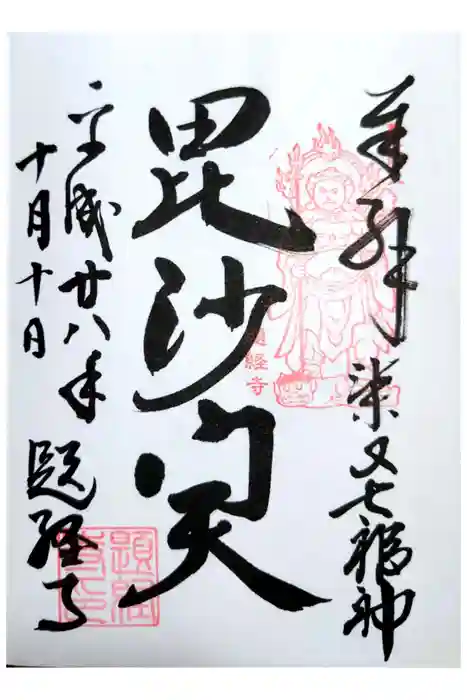 奉拝 柴又七福神
毘沙門天
題経寺
平成廿八年
十月十日
題経寺
題経寺印